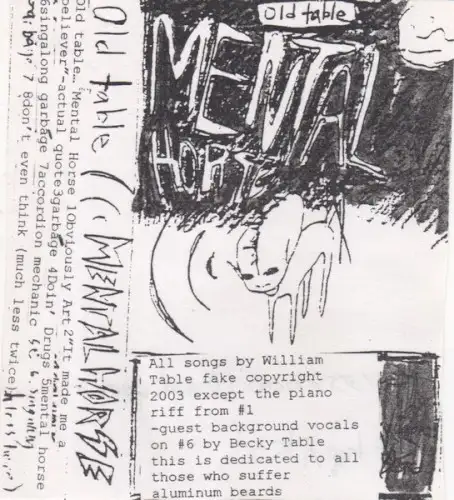 old table
MENTAL
HORSE
All songs by William
Table fake copyright
2003 except the piano
riff from #1
-guest background vocals
on #6 by Becky Table
this is dedicated to all
those who suffer
aluminum beards
Old table MENTAL HORSE
Old table… Mental Horse 1Obviously Art 2"It made me a
believer"-actual quote3garbage 4Doin' Drugs 5mental horse
6singalong garbage 7accordion mechanic
7 8don't even think (much less twice)